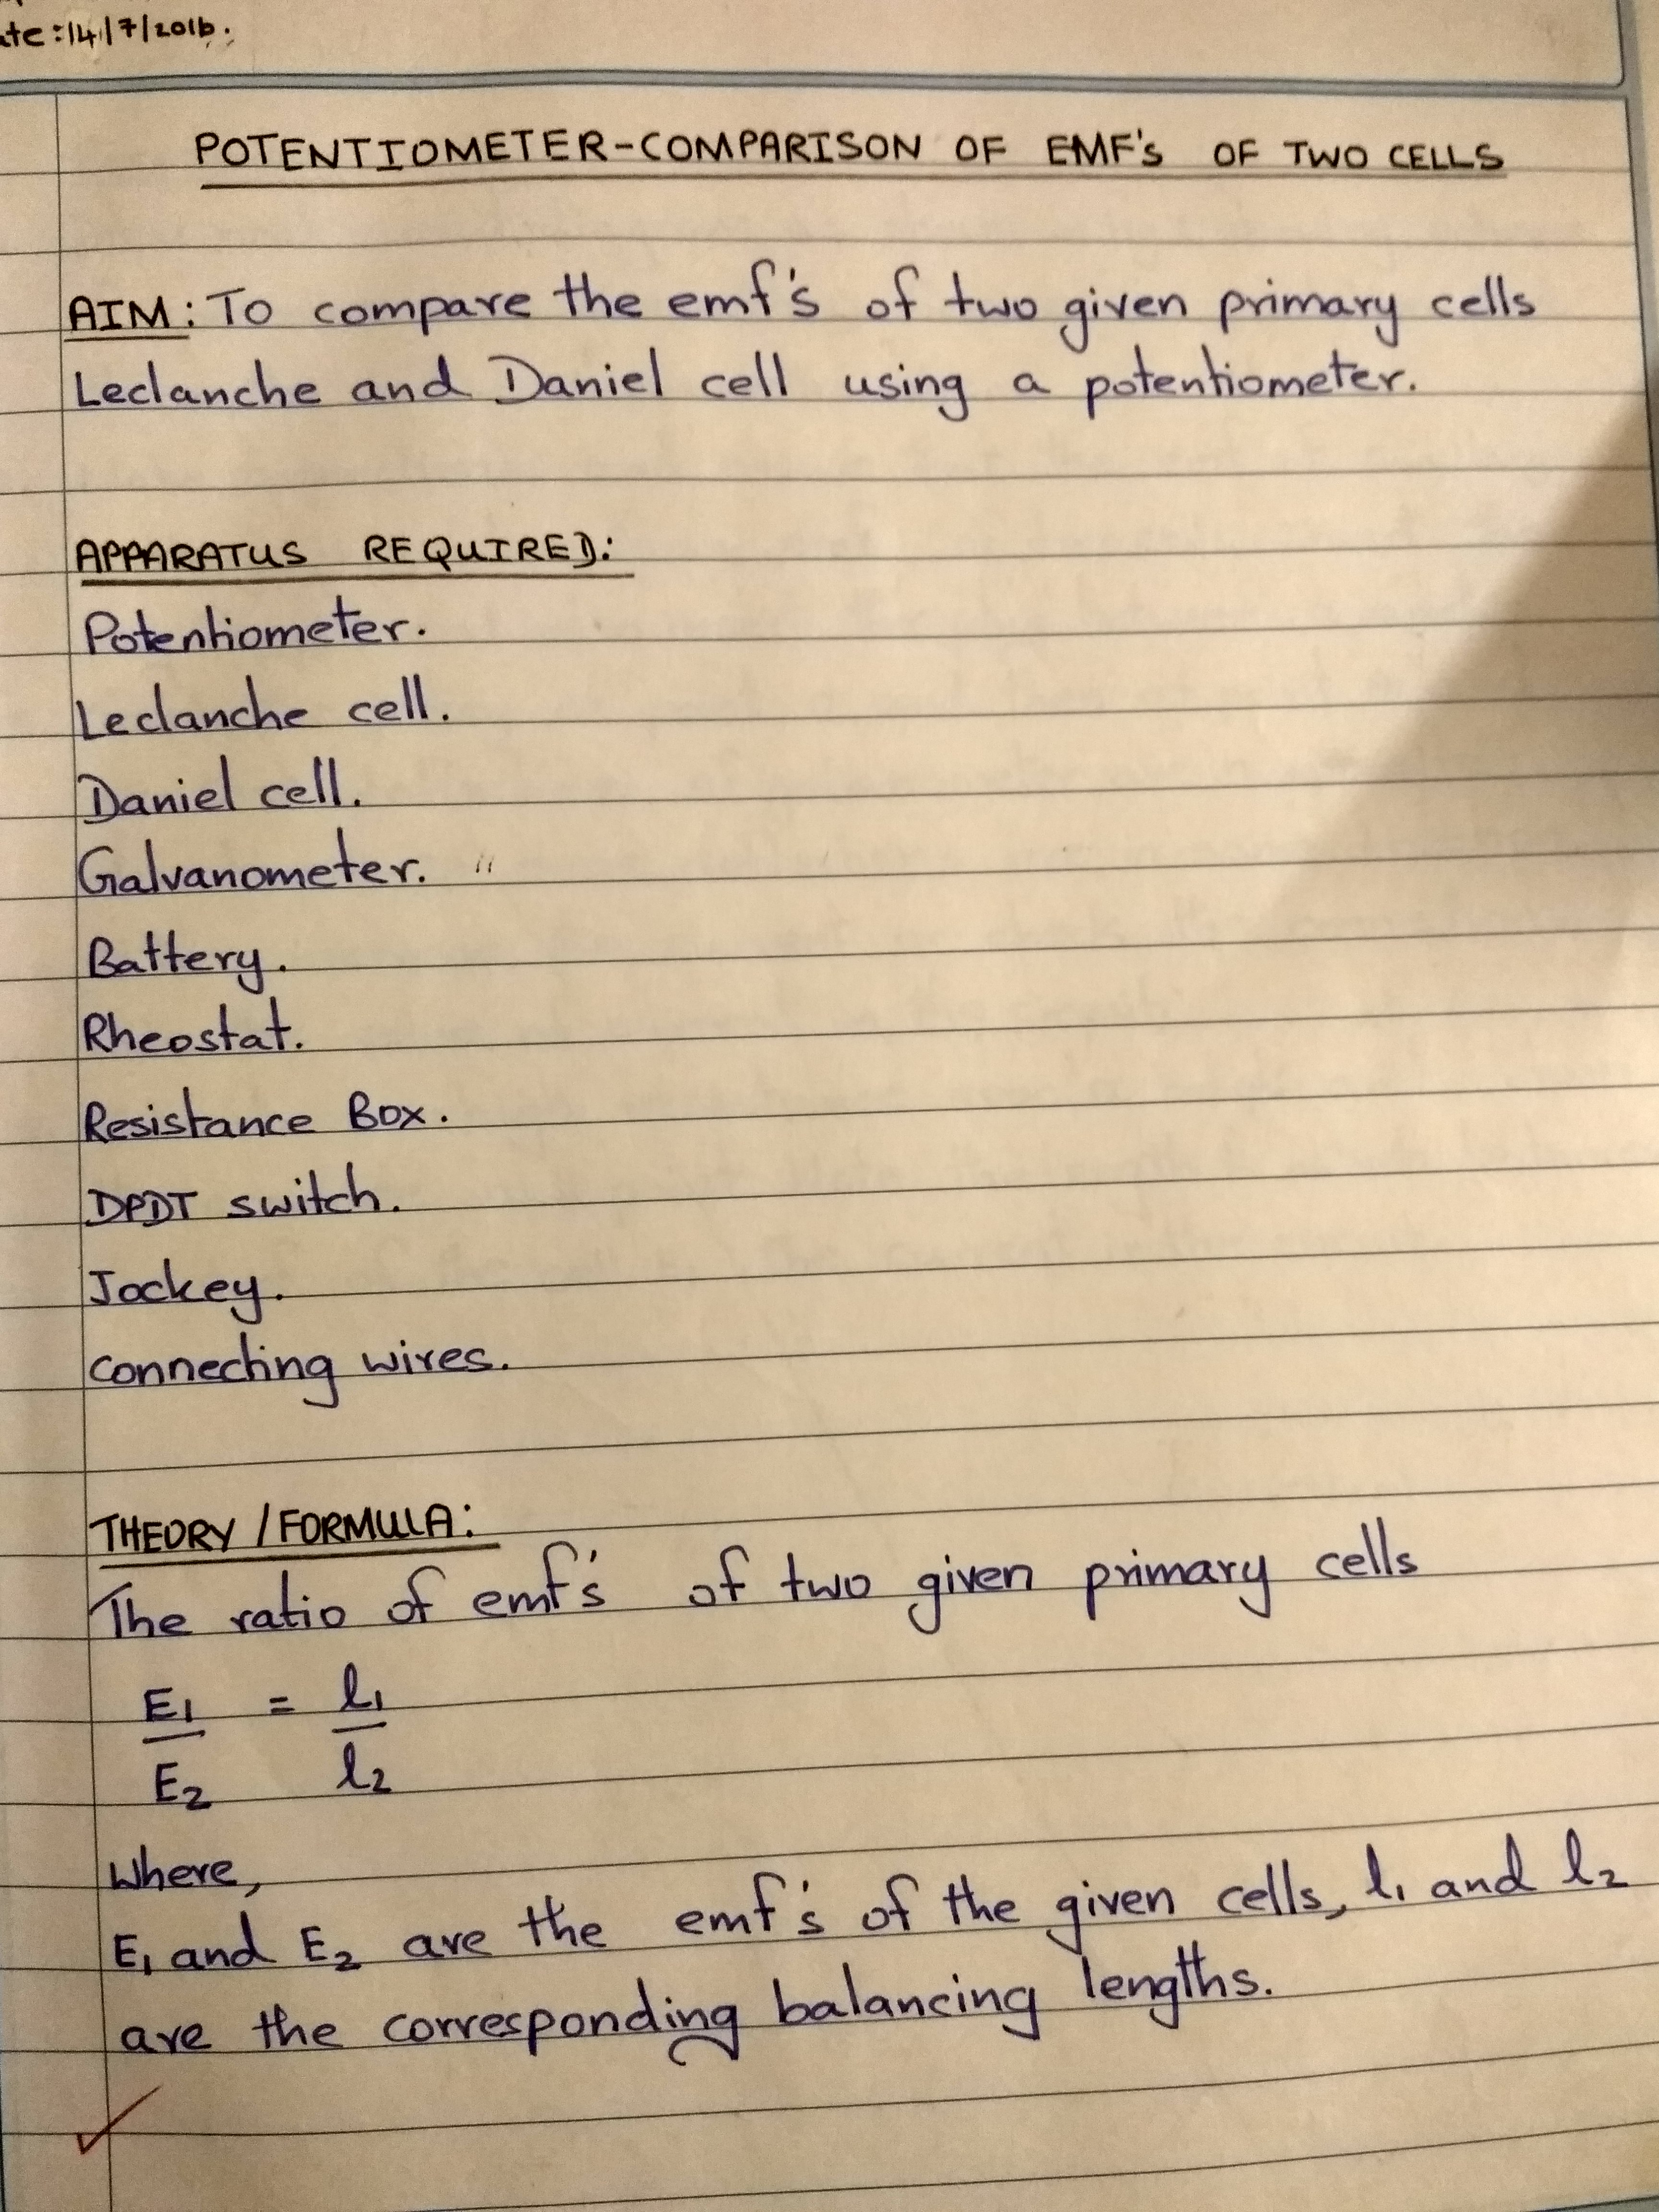 ate:14/7/2016.
POTENTIOMETER-COMPARISON OF EMF's OF TWO CELLS
AIM: To compare the emf's of two given primary cells
Leclanche and Daniel cell using a potentiometer.
APPARATUS REQUIRED:
Potentiometer.
Leclanche cell.
Daniel cell.
Galvanometer.
Battery.
Rheostat.
Resistance Box.
DPDT switch.
Jockey.
connecting wires.
THEORY / FORMULA:
The ratio of emf's of two given primary cells
E1 = l1
E2 l2
Where,
E1 and E2 are the emf's of the given cells, l1 and l2
are the corresponding balancing lengths.